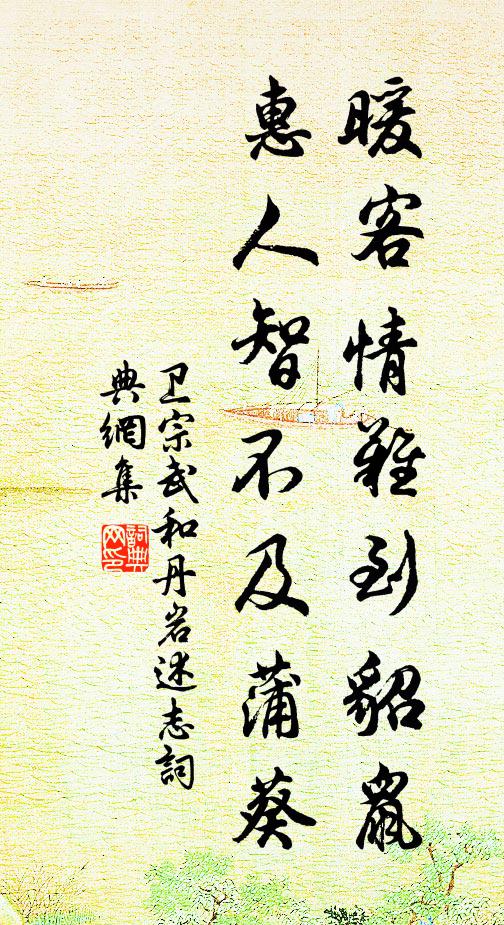 暖客情難到貂鼠
惠人智不及蒲葵
卫宗武和丹岩述志詞
典網集
詞典
网印